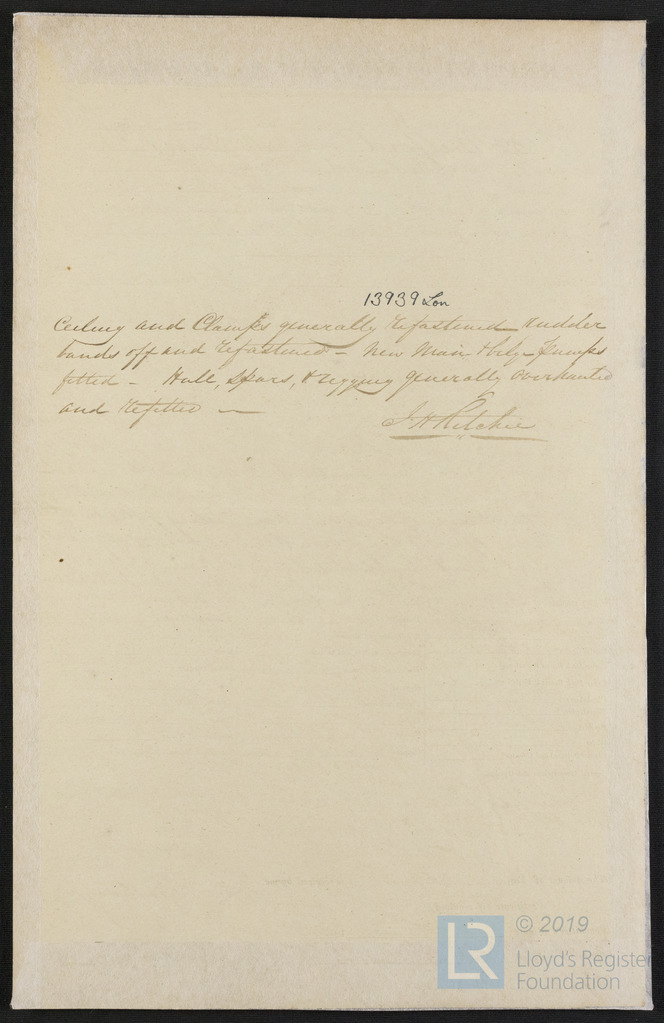 13939 Lon
Ceiling and Clamps generally refastened rudder
bands off and refastened - New Main & bilge Pumps
fitted - Hull, Spars, & rigging generally overhauled
and refitted -
J H Ritchie
LR © 2019
Lloyd's Register
Foundation